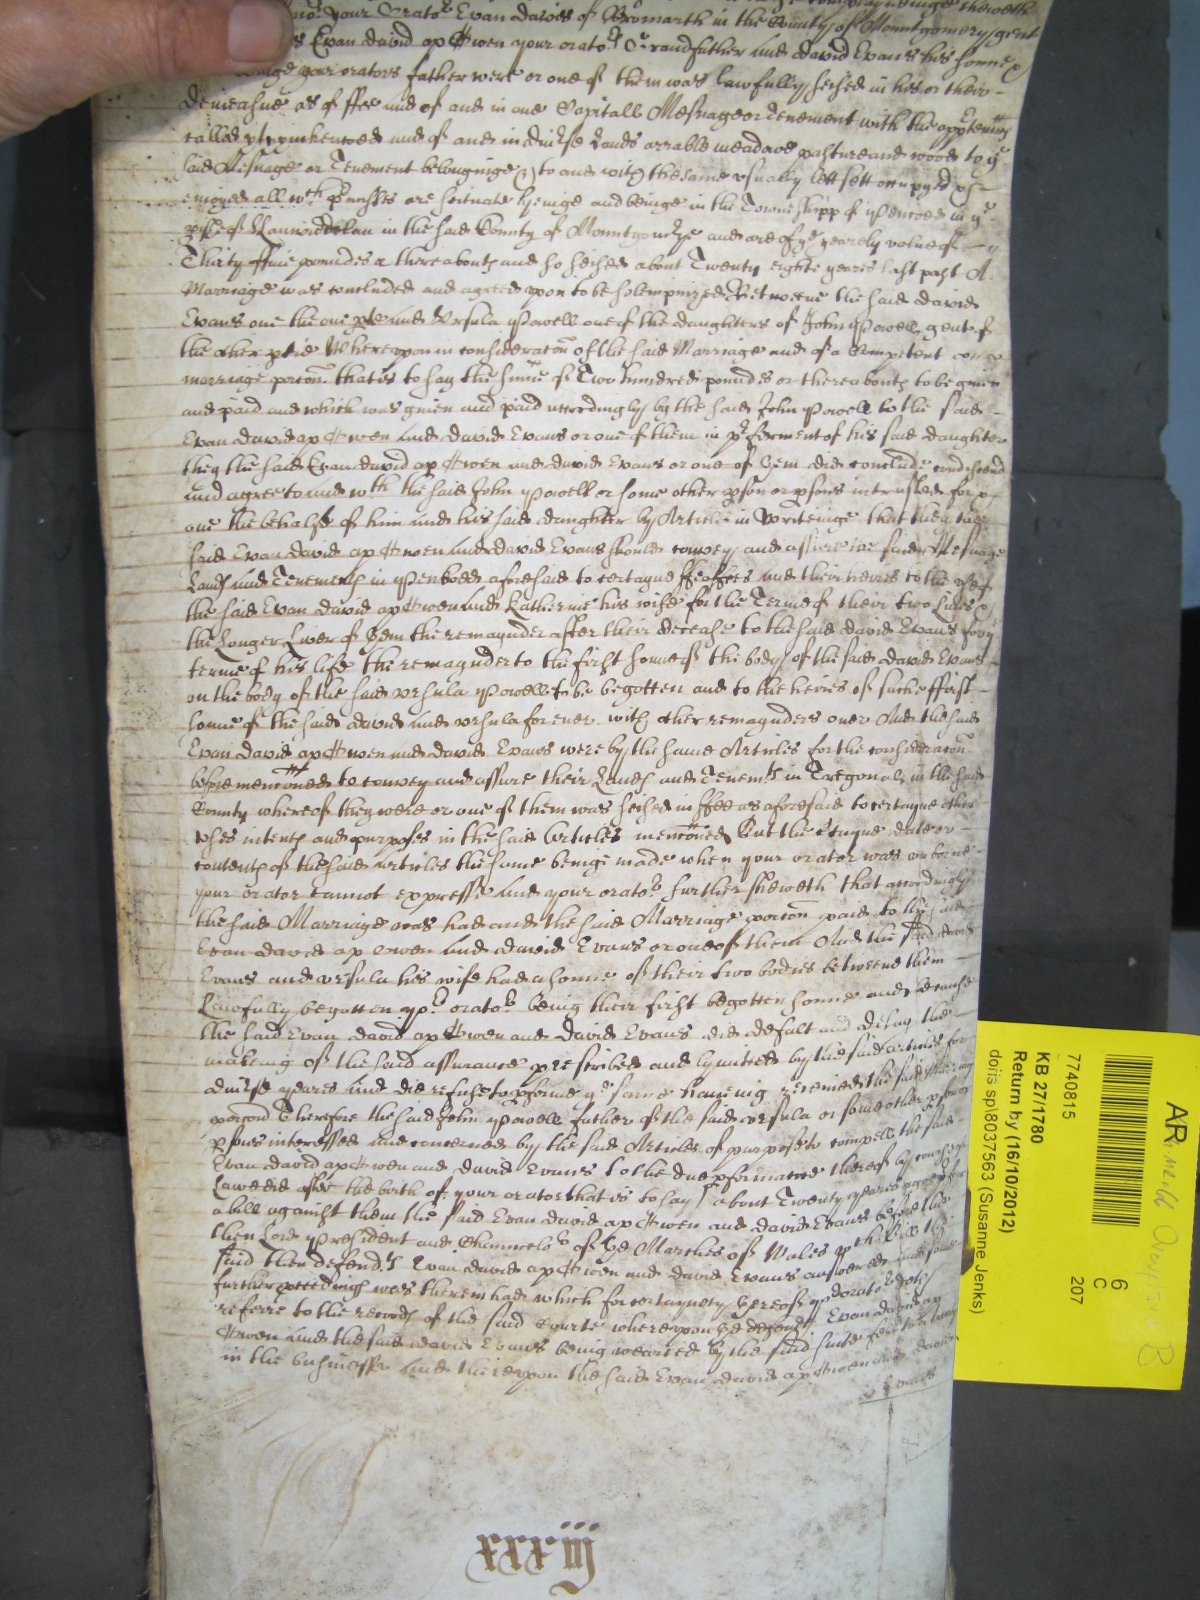 your Orator Evan davies of in the County of Mountgomery gent
Evan david ap Owen your orators Grandfather and david Evans his sonne
your orators father were or one of them was lawfully seised in his or their
demeasne as of ffee and of and in one Capitall Mesuage or Tenement with the apptennces
called and of and in diu'se lands arrable meadowe pasture and wood to ye
said Mesuage or Tenement belonginge to and with the same vsually lett sett occupyed
enioyed all wch pmisses are scituate lyeinge and beinge in the Towneshipp of in ye
pishe of Llanwiddelan in the said County of Mountgom'ye and are of ye yearely value of
Thirty ffiue poundes or thereaboutes and so seised about Twenty eighte yeares last past A
Marriage was concluded and agreed vpon to be solempnized Betweene the said david
Evans one the one pte and Vrsula Powell one of the daughters of John Powell gent of
the other ptie Wherevpon in consideracon of the said Marriage and of a Competent
marriage porcon that is to say the summe of Two hundred poundes or thereaboutes to be giuen
and paid and which was giuen and paid accordingly by the said John Powell to the said
Evan david ap Owen and david Evans or one of them in pferment of his said daughter
they the said Evan david ap Owen and david Evans or one of them did conclude condiscend
and agree to and wth the said John Powell or some other pson or psons intrusted for
one the behalfe of him and his said daughter by Articles in Writeinge that they the
said Evan david ap Owen and david Evans should convey and assure the said Mesuage
Landes and Tenementes in aforesaid to certayne ffeoffees and their heires to the vse of
the said Evan david ap Owen and Katherine his wife for the Terme of their two liues
the Longer Liver of them the remaynder after their decease to the said david Evans for ye
terme of his life the remaynder to the first sonne of the body of the said david Evans
on the body of the said Vrsula Powell to be begotten and to the heires of such ffirst
sonne of the said david and Vrsula for ever with other remaynders over And the said
Evan david ap Owen and david Evans were by the same Articles for the consideracon
before menconed to convey and assure their Landes and Tenemts in Tregonal in the said
County whereof they were or one of them was seised in ffee as aforesaid to certayne other
vses intentes and purposes in the said Articles menconed But the Certayne date or
contentes of the said articles the same being made when your orator was vnborne
your orator cannot expresse And your orator further sheweth that accordingly
the said Marriage was had and the said Marriage porcon paid to the said
Evan david ap Owen and david Evans or one of them And the said david
Evans and Vrsula his wife had a sonne of their two bodies betweene them
Lawfully begotten yor orator being their first begotten sonne and because
the said Evan david ap Owen and david Evans did defalt and delay the
making of the said assurance prescribed and lymitted by the said articles for
diu'se yeares and did refuse to pforme ye same haueing receiued the said marriage
porcon Therefore the said John Powell father of the said Vrsula or some other pson or
psons interessed and concerned by the said Articles of purpose to compell the said
Evan david ap Owen and david Evans to the due pformance thereof by course of
Lawe did after the birth of your orator that is to say about Twenty yeares agoe
a bill against them the said Evan david ap Owen and david Evans before the
then Lord President and Chauncelor of the Marches of Wales
said then defendts Evan david ap Owen and david Evans answered and some
further pceedings was therein had which for certaynety thereof yor orator doth
referre to the recordes of the said Courte wherevpon the defendts Evan david ap
Owen and the said david Evans being wearied by the said suite
in the businesse And therevpon the said Evan david ap Owen and david
Evans
xxxiij
AR
6
C
207
7740815
KB 27/1780
Return by (16/10/2012)
doris sp\8037563 (Susanne Jenks)